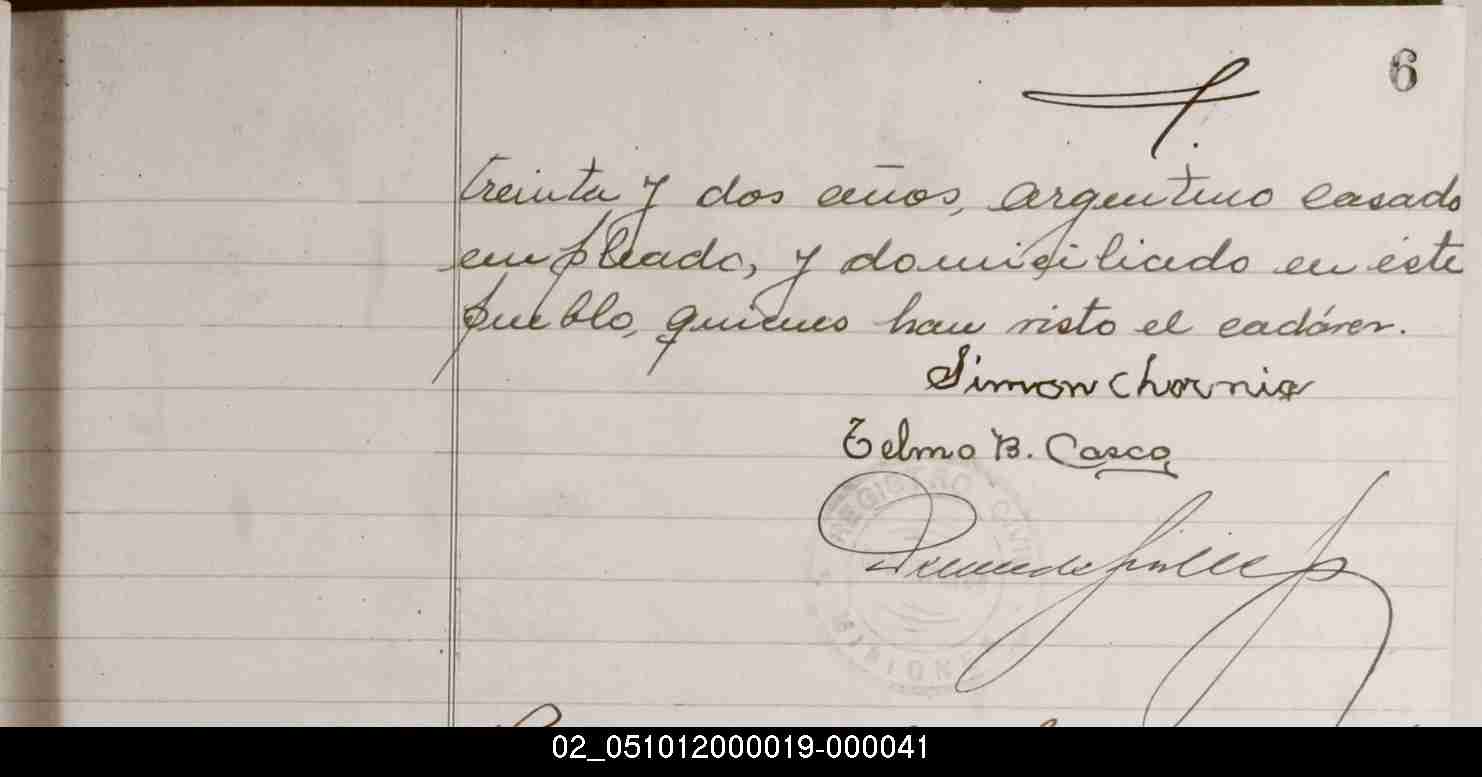 6
treinta y dos años, argentino casado
empleado, y domiciliado en este
pueblo, quienes han visto el cadáver.
Simon Chornia
Telmo B. Casco
REGISTRO CIVIL
MISIONES
02_051012000019-000041